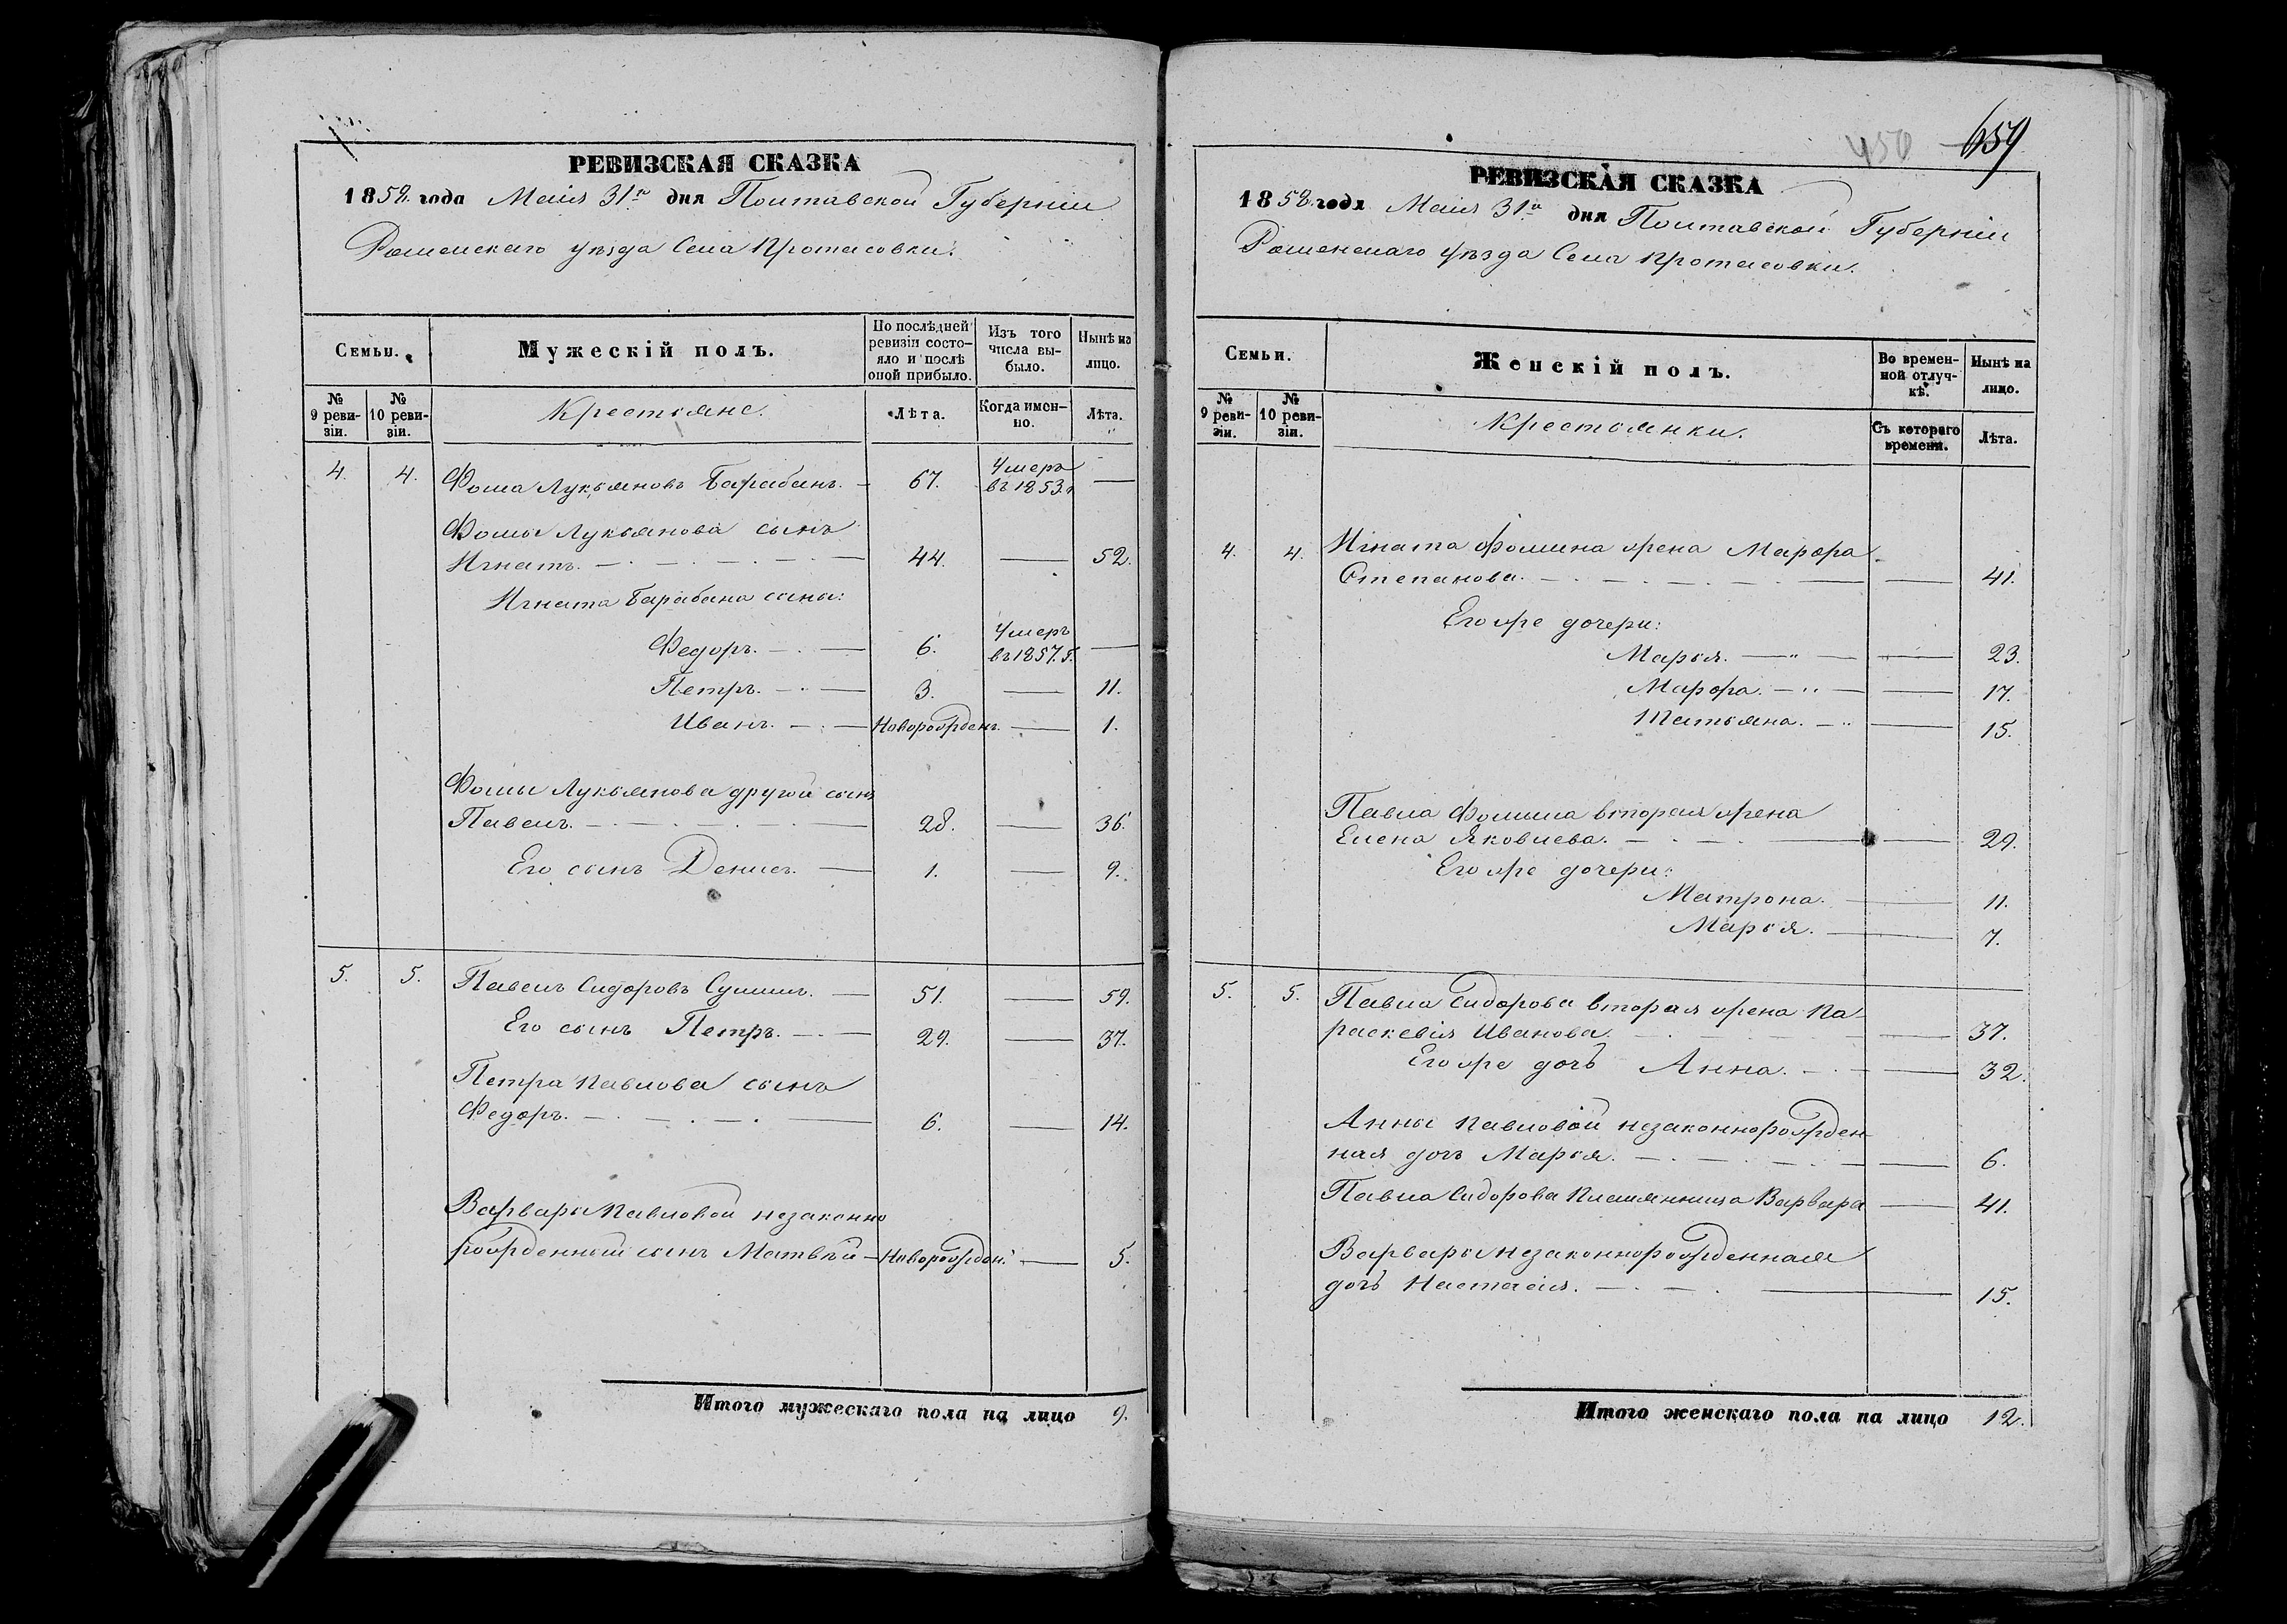 РЕВИЗСКАЯ СКАЗКА
1858. года Маія 31го дня Полтавской Губерніи
Роменскаго уѣзда Села Протасовки.
Семьи.
Мужескій полъ.
По послѣдней ревизіи состо-яло и послѣ оной прибыло.
Изъ того числа вы-было.
Нынѣ на лицо.
№ 9 реви-зіи.
№ 10 реви-зіи.
Крестьяне.
Лѣта.
Когда имен-но.
Лѣта.
4. 4. Фома Лукьяновъ Барабанъ. — 67. Умеръ въ 1853 г. —
Фомы Лукьянова сынъ
Игнатъ. — 44. — 52.
Игната Барабана сыны:
Федоръ. — 6. Умеръ въ 1857. г. —
Петръ. — 3. — 11.
Иванъ. — Новорожденъ. — 1.
Фомы Лукьянова другой сынъ
Павелъ. — 28. — 36.
Его сынъ Денисъ. — 1. — 9.
5. 5. Павелъ Сидоровъ Сушилъ. — 51. — 59.
Его сынъ Петръ. — 29. — 37.
Петра Павлова сынъ
Федоръ. — 6. — 14.
Варвары Павловой незаконно
рожденный сынъ Матвѣй — Новорожден. — 5.
Итого мужескаго пола на лицо 9.
450 659
РЕВИЗСКАЯ СКАЗКА
1858. года Маія 31го дня Полтавской Губерніи
Роменскаго уѣзда Села Протасовки.
Семьи.
Женскій полъ.
Во времен-ной отлуч-кѣ.
Нынѣ на лицо.
№ 9 реви-зіи.
№ 10 реви-зіи.
Крестьянки.
Съ котораго времени.
Лѣта.
4. 4. Игната Фомина жена Марфа
Степанова. — — 41.
Его же дочери:
Марья. — — 23.
Марфа. — — 17.
Татьяна. — — 15.
Павла Фомина вторая жена
Елена Яковлева. — — 29.
Его же дочери:
Матрона. — 11.
Марья. — 7.
5. 5. Павла Сидорова вторая жена Па-
раскевія Иванова. — — 37.
Его же дочь Анна. — — 32.
Анны Павловой незаконнорожден-
ная дочь Марья. — — 6.
Павла Сидорова племянница Варвара — 41.
Варвары незаконнорожденная
дочь Настасія. — — 15.
Итого женскаго пола на лицо 12.